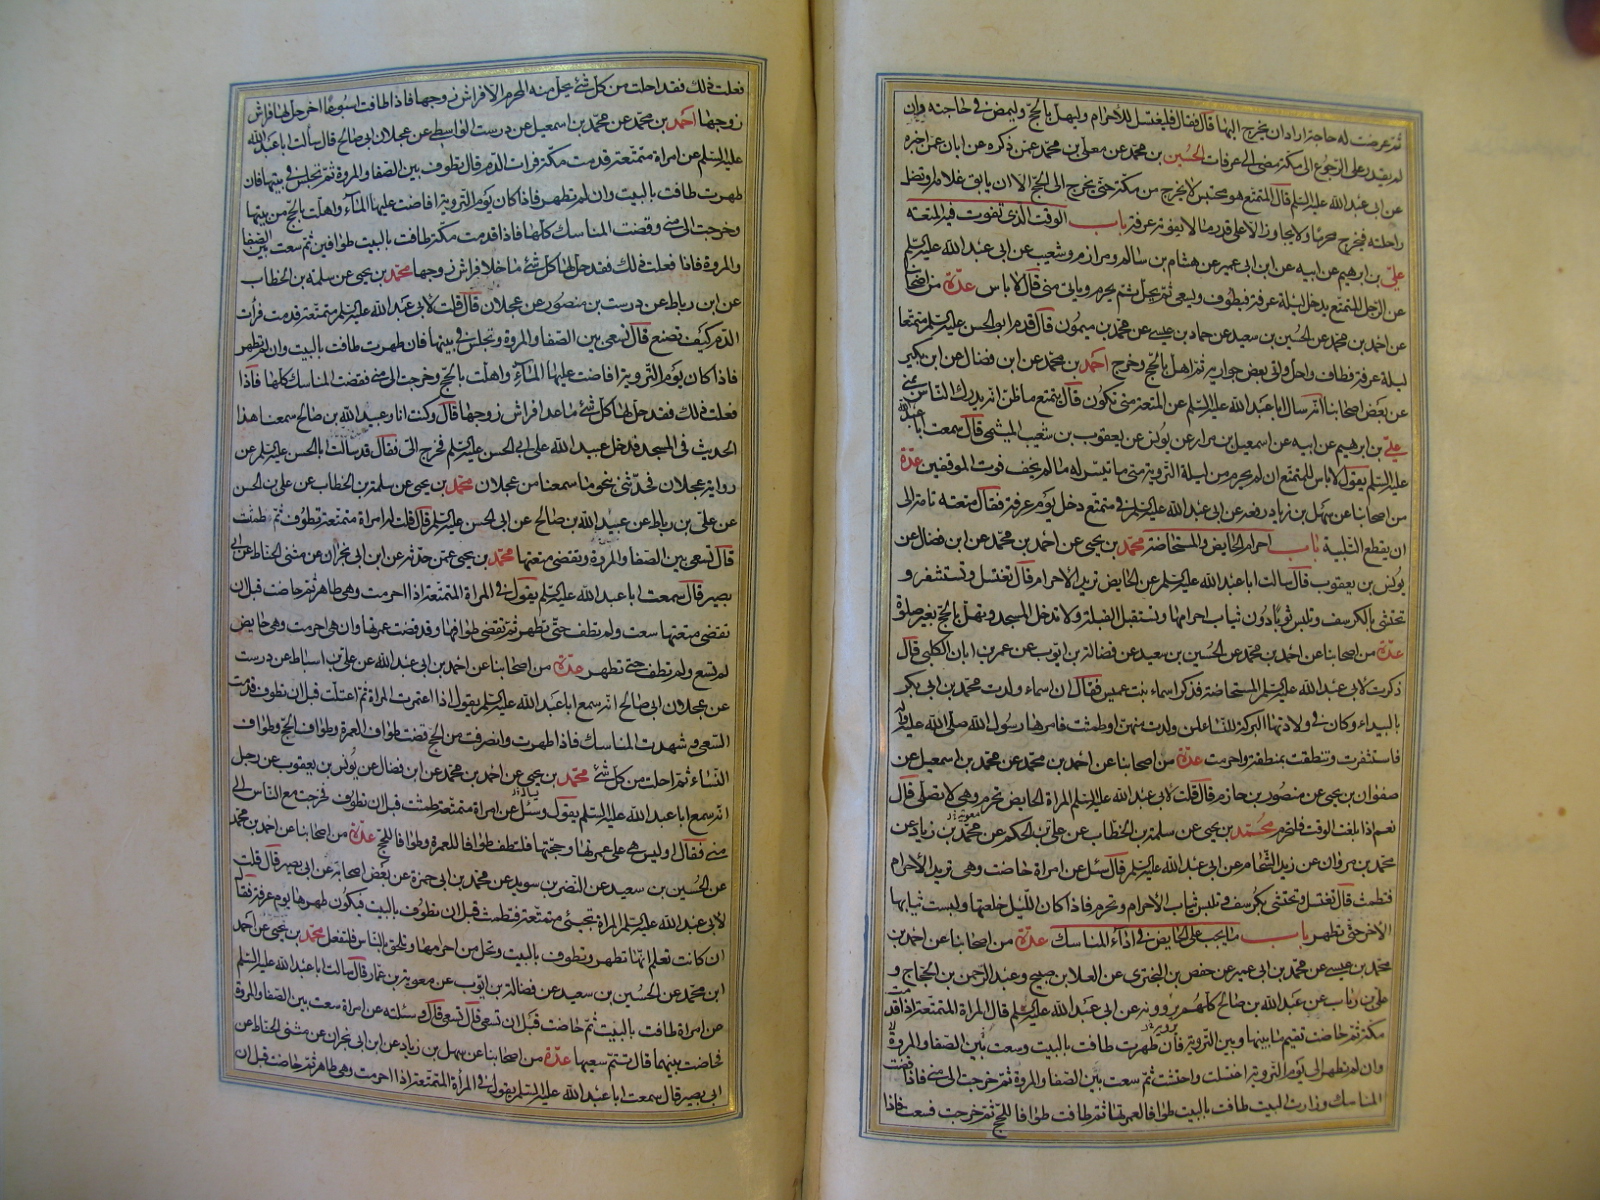 ثم عرضت له حاجة اراد ان يخرج اليها قال فقال فليغتسل للاحرام وليهل بالحج وليمض في حاجته وان
لم يقدر على الرجوع الى مكة مضى الى عرفات الحسين بن محمد عن معلى بن محمد عمن ذكره عن ابان عمن اخبره
عن ابي عبد الله عليه السلم قال المتمتع هو محتبس لا يخرج من مكة حتى يخرج الى الحج الا ان يابق غلامه او تضل
راحلته فيخرج محرما ولا يجاوز الا على قدر ما لا يفوته عرفة باب الوقت الذي تفوت فيه المتعة
علي بن ابرهيم عن ابيه عن ابن ابي عمير عن هشام بن سالم ومرازم وشعيب عن ابي عبد الله عليه السلم
عن الرجل المتمتع يدخل ليلة عرفة فيطوف ويسعى ثم يحل ثم يحرم وياتي منى قال لا باس عدة من اصحابنا
عن احمد بن محمد عن الحسين بن سعيد عن حماد بن عيسى عن محمد بن ميمون قال قدم ابو الحسن عليه السلم متمتعا
ليلة عرفة فطاف واحل واتى بعض جواريه ثم اهل بالحج وخرج احمد بن محمد عن ابن فضال عن ابن بكير
عن بعض اصحابنا انه سال ابا عبد الله عليه السلم عن المتعة متى تكون قال يتمتع ما ظن انه يدرك الناس بمنى
علي بن ابرهيم عن ابيه عن اسمعيل بن مرار عن يونس عن يعقوب بن شعيب الميثمي قال سمعت ابا عبد الله
عليه السلم يقول لا باس للمتمتع ان لم يحرم من ليلة التروية متى ما تيسر له ما لم يخف فوت الموقفين عدة
من اصحابنا عن سهل بن زياد رفعه عن ابي عبد الله عليه السلم في متمتع دخل يوم عرفة فقال متعته تامة الى
ان يقطع التلبية باب احرام الحايض والمستحاضة محمد بن يحيى عن احمد بن محمد عن ابن فضال عن
يونس بن يعقوب قال سالت ابا عبد الله عليه السلم عن الحايض تريد الاحرام قال تغتسل وتستثفر و
تحتشي بالكرسف وتلبس ثوبا دون ثياب احرامها وتستقبل القبلة ولا تدخل المسجد وتهل بالحج بغير صلوة
عدة من اصحابنا عن احمد بن محمد عن الحسين بن سعيد عن فضالة بن ايوب عن عمر بن ابان الكلبي قال
ذكرت لابي عبد الله عليه السلم المستحاضة فذكر اسماء بنت عميس فقال ان اسماء ولدت محمد بن ابي بكر
بالبيداء وكان في ولادتها البركة للنساء لمن ولدت منهن او طمثت فامرها رسول الله صلى الله عليه واله
فاستثفرت وتنطقت بمنطقة واحرمت عدة من اصحابنا عن احمد بن محمد عن محمد بن اسمعيل عن
صفوان بن يحيى عن منصور بن حازم قال قلت لابي عبد الله عليه السلم المراة الحايض تحرم وهي لا تصلي قال
نعم اذا بلغت الوقت فلتحرم محمد بن يحيى عن سلمة بن الخطاب عن علي بن الحكم عن محمد بن زياد عن
محمد بن مروان عن زيد الشحام عن ابي عبد الله عليه السلم قال سئل عن امراة حاضت وهي تريد الاحرام
فتطمث قال تغتسل وتحتشي بكرسف وتلبس ثياب الاحرام وتحرم فاذا كان الليل خلعتها ولبست ثيابها
الاخر حتى تطهر باب ما يجب على الحايض في اداء المناسك عدة من اصحابنا عن احمد بن
محمد بن عيسى عن محمد بن ابي عمير عن حفص بن البختري عن العلا بن صبيح وعبد الرحمن بن الحجاج و
علي بن رئاب عن عبد الله بن صالح كلهم يروونه عن ابي عبد الله عليه السلم قال المراة المتمتعة اذا قدمت
مكة ثم حاضت تقيم ما بينها وبين التروية فان طهرت طافت بالبيت وسعت بين الصفا والمروة
وان لم تطهر الى يوم التروية اغتسلت واحتشت ثم سعت بين الصفا والمروة ثم خرجت الى منى فاذا قضت
المناسك وزارت البيت طافت بالبيت طوافا لعمرتها ثم طافت طوافا للحج ثم خرجت فسعت فاذا
فعلت ذلك فقد احلت من كل شئ يحل منه المحرم الا فراش زوجها فاذا طافت اسبوعا اخر حل لها فراش
زوجها احمد بن محمد عن محمد بن اسمعيل عن درست الواسطي عن عجلان ابي صالح قال سالت ابا عبد الله
عليه السلم عن امراة متمتعة قدمت مكة فرات الدم قال تطوف بين الصفا والمروة ثم تجلس في بيتها فان
طهرت طافت بالبيت وان لم تطهر فاذا كان يوم التروية افاضت عليها الماء واهلت بالحج من بيتها
وخرجت الى منى وقضت المناسك كلها فاذا قدمت مكة طافت بالبيت طوافين ثم سعت بين الصفا
والمروة فاذا فعلت ذلك فقد حل لها كل شئ ما خلا فراش زوجها محمد بن يحيى عن سلمة بن الخطاب
عن ابن رباط عن درست بن منصور عن عجلان قال قلت لابي عبد الله عليه السلم متمتعة قدمت فرات
الدم كيف تصنع قال تسعى بين الصفا والمروة وتجلس في بيتها فان طهرت طافت بالبيت وان لم تطهر
فاذا كان يوم التروية افاضت عليها الماء واهلت بالحج وخرجت الى منى فقضت المناسك كلها فاذا
فعلت ذلك فقد حل لها كل شئ ما عدا فراش زوجها قال وكنت انا وعبيد الله بن صالح سمعنا هذا
الحديث في المسجد فدخل عبيد الله على ابي الحسن عليه السلم فخرج الي فقال قد سالت ابا الحسن عليه السلم عن
رواية عجلان فحدثني بنحو ما سمعنا من عجلان محمد بن يحيى عن سلمة بن الخطاب عن علي بن الحسن
عن علي بن رباط عن عبيد الله بن صالح عن ابي الحسن عليه السلم قال قلت له امراة متمتعة تطوف ثم طمثت
قال تسعى بين الصفا والمروة وتقضي متعتها محمد بن يحيى عمن حدثه عن ابن ابي نجران عن مثنى الحناط عن ابي
بصير قال سمعت ابا عبد الله عليه السلم يقول في المراة المتمتعة اذا احرمت وهي طاهر ثم حاضت قبل ان
تقضي متعتها سعت ولم تطف حتى تطهر ثم تقضي طوافها وقد قضت عمرتها وان هي احرمت وهي حايض
لم تسع ولم تطف حتى تطهر عدة من اصحابنا عن احمد بن ابي عبد الله عن علي بن اسباط عن درست
عن عجلان ابي صالح انه سمع ابا عبد الله عليه السلم يقول اذا اعتمرت المراة ثم اعتلت قبل ان تطوف قدمت
السعي وشهدت المناسك فاذا طهرت وانصرفت من الحج قضت طواف العمرة وطواف الحج وطواف
النساء ثم احلت من كل شئ محمد بن يحيى عن احمد بن محمد عن ابن فضال عن يونس بن يعقوب عن رجل
انه سمع ابا عبد الله عليه السلم يقول وسئل عن امراة متمتعة طمثت قبل ان تطوف فخرجت مع الناس الى
منى فقال اوليس هي على عمرتها وحجتها فلتطف طوافا للعمرة وطوافا للحج عدة من اصحابنا عن احمد بن محمد
عن الحسين بن سعيد عن النضر بن سويد عن محمد بن ابي حمزة عن بعض اصحابه عن ابي بصير قال قلت
لابي عبد الله عليه السلم المراة تجيئ متمتعة فتطمث قبل ان تطوف بالبيت فيكون طهرها يوم عرفة فقال
ان كانت تعلم انها تطهر وتطوف بالبيت وتحل من احرامها وتلحق بالناس فلتفعل محمد بن يحيى عن احمد
ابن محمد عن الحسين بن سعيد عن فضالة بن ايوب عن معوية بن عمار قال سالت ابا عبد الله عليه السلم
عن امراة طافت بالبيت ثم حاضت قبل ان تسعى قال تسعى قال وسئلته عن امراة سعت بين الصفا والمروة
فحاضت بينهما قال تتم سعيها عدة من اصحابنا عن سهل بن زياد عن ابن ابي نجران عن مثنى الحناط عن
ابي بصير قال سمعت ابا عبد الله عليه السلم يقول في المراة المتمتعة اذا احرمت وهي طاهر ثم حاضت قبل ان